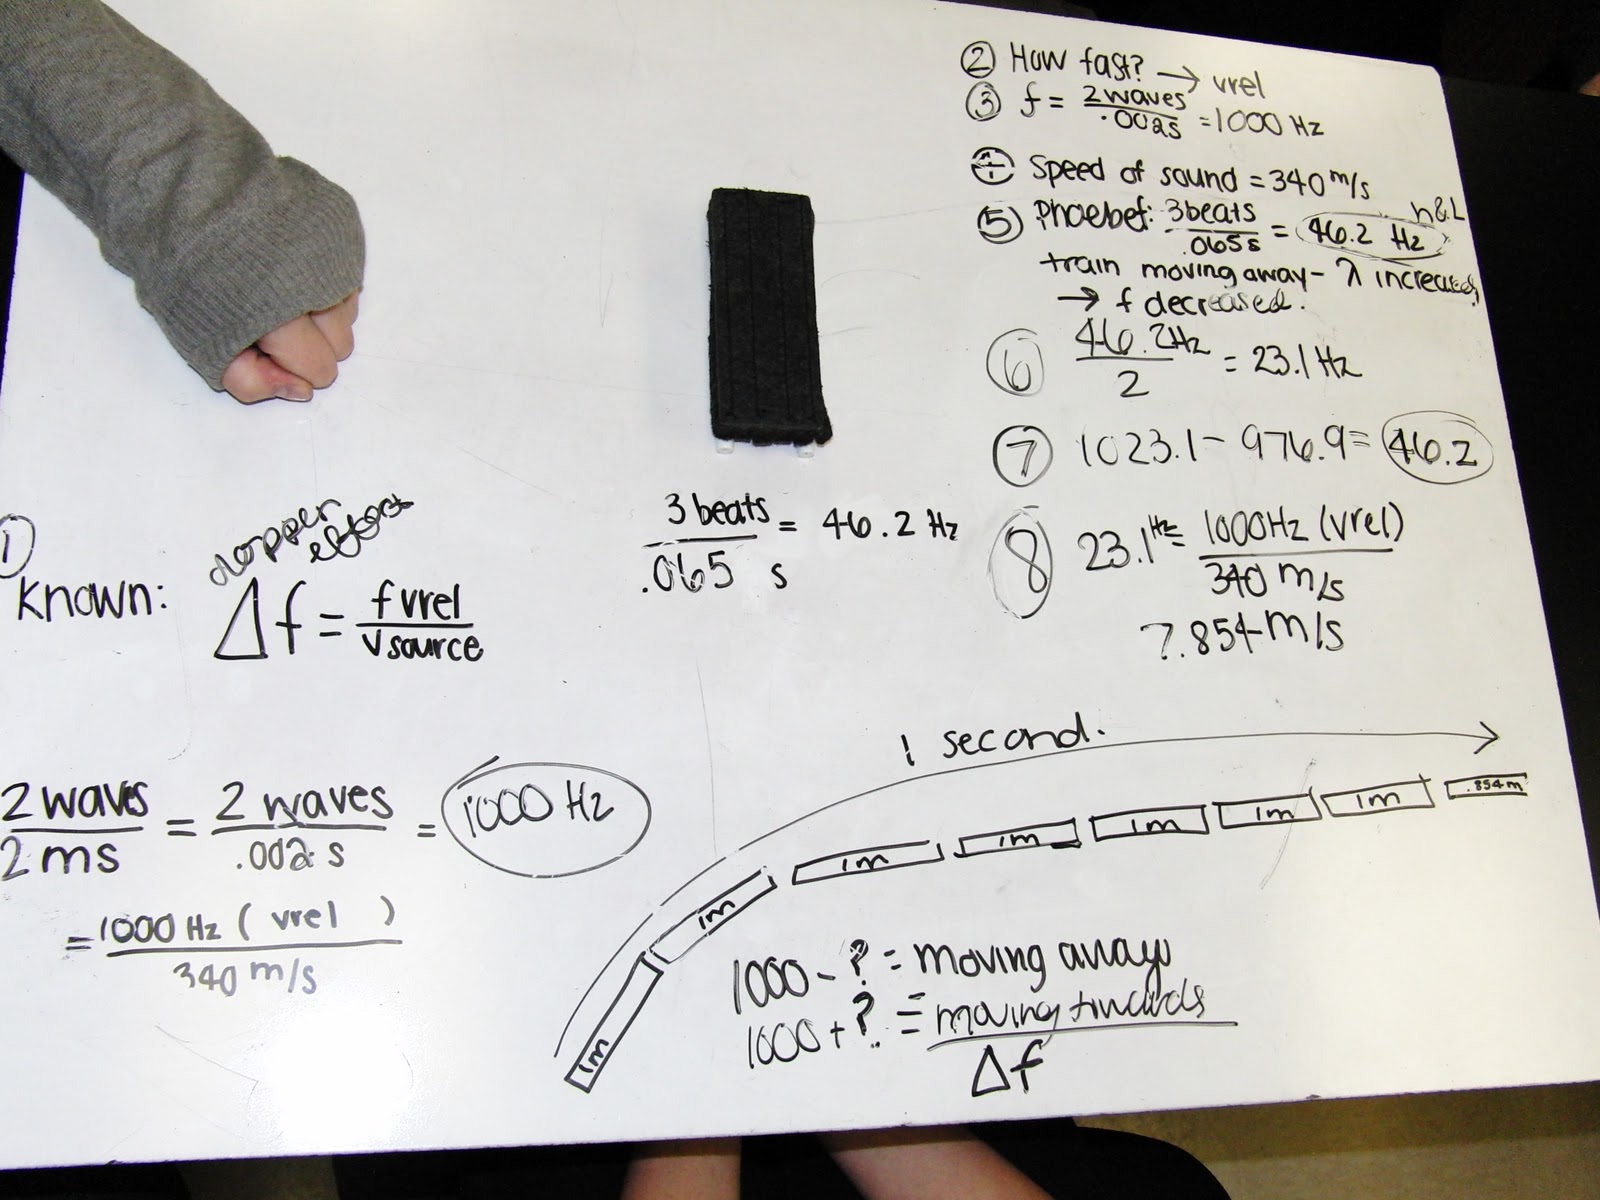 ② How fast? → vrel
③ f = 2 waves / .002s = 1000 Hz
④ Speed of sound = 340 m/s
⑤ Phoebef: 3 beats / .065 s = 46.2 Hz
train moving away - λ increased,
→ f decreased.
⑥ 46.2Hz / 2 = 23.1 Hz
⑦ 1023.1 - 976.9 = 46.2
⑧ 23.1 Hz = 1000Hz (vrel) / 340 m/s
7.854 m/s
3 beats / .065 s = 46.2 Hz
①
Known:
effect
Δf = f vrel / vsource
2 waves / 2 ms = 2 waves / .002 s = 1000 Hz
= 1000 Hz ( vrel ) / 340 m/s
1 second.
1m 1m 1m 1m 1m 1m 1m .854m
1000 - ? = moving away
1000 + ? = moving towards
Δf